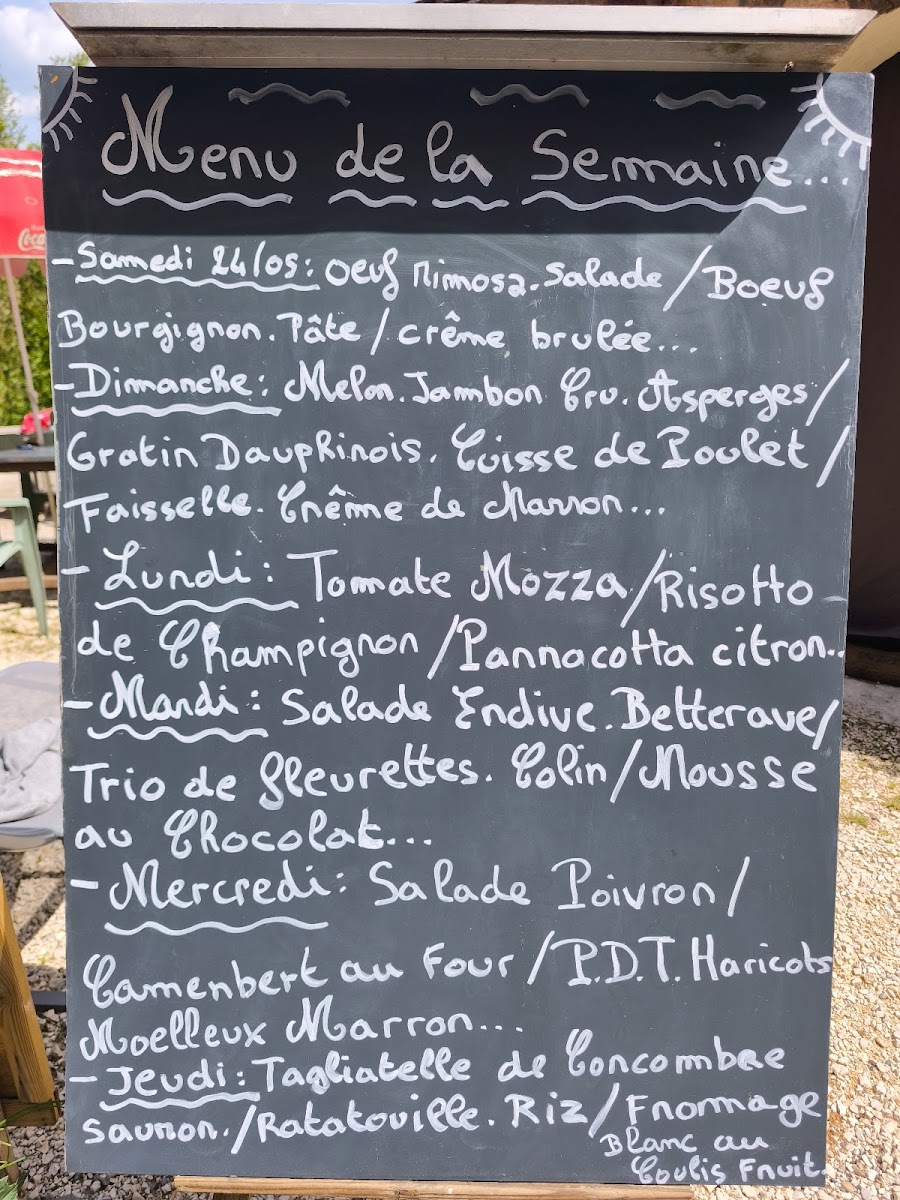 Menu de la Semaine...
- Samedi 24/05: Oeuf Mimosa. Salade / Boeuf
Bourgignon. Pâte / crême brulée...
- Dimanche: Melon. Jambon Cru. Asperges /
Gratin Dauphinois. Cuisse de Poulet /
Faisselle. Crême de Marron...
- Lundi: Tomate Mozza / Risotto
de Champignon / Pannacotta citron..
- Mardi: Salade Endive. Betterave /
Trio de fleurettes. Colin / Mousse
au Chocolat...
- Mercredi: Salade Poivron /
Camenbert au Four / P.D.T. Haricots
Moelleux Marron...
- Jeudi: Tagliatelle de Concombre
saumon. / Ratatouille. Riz / Fromage
Blanc au
Coulis Fruit.
Coca